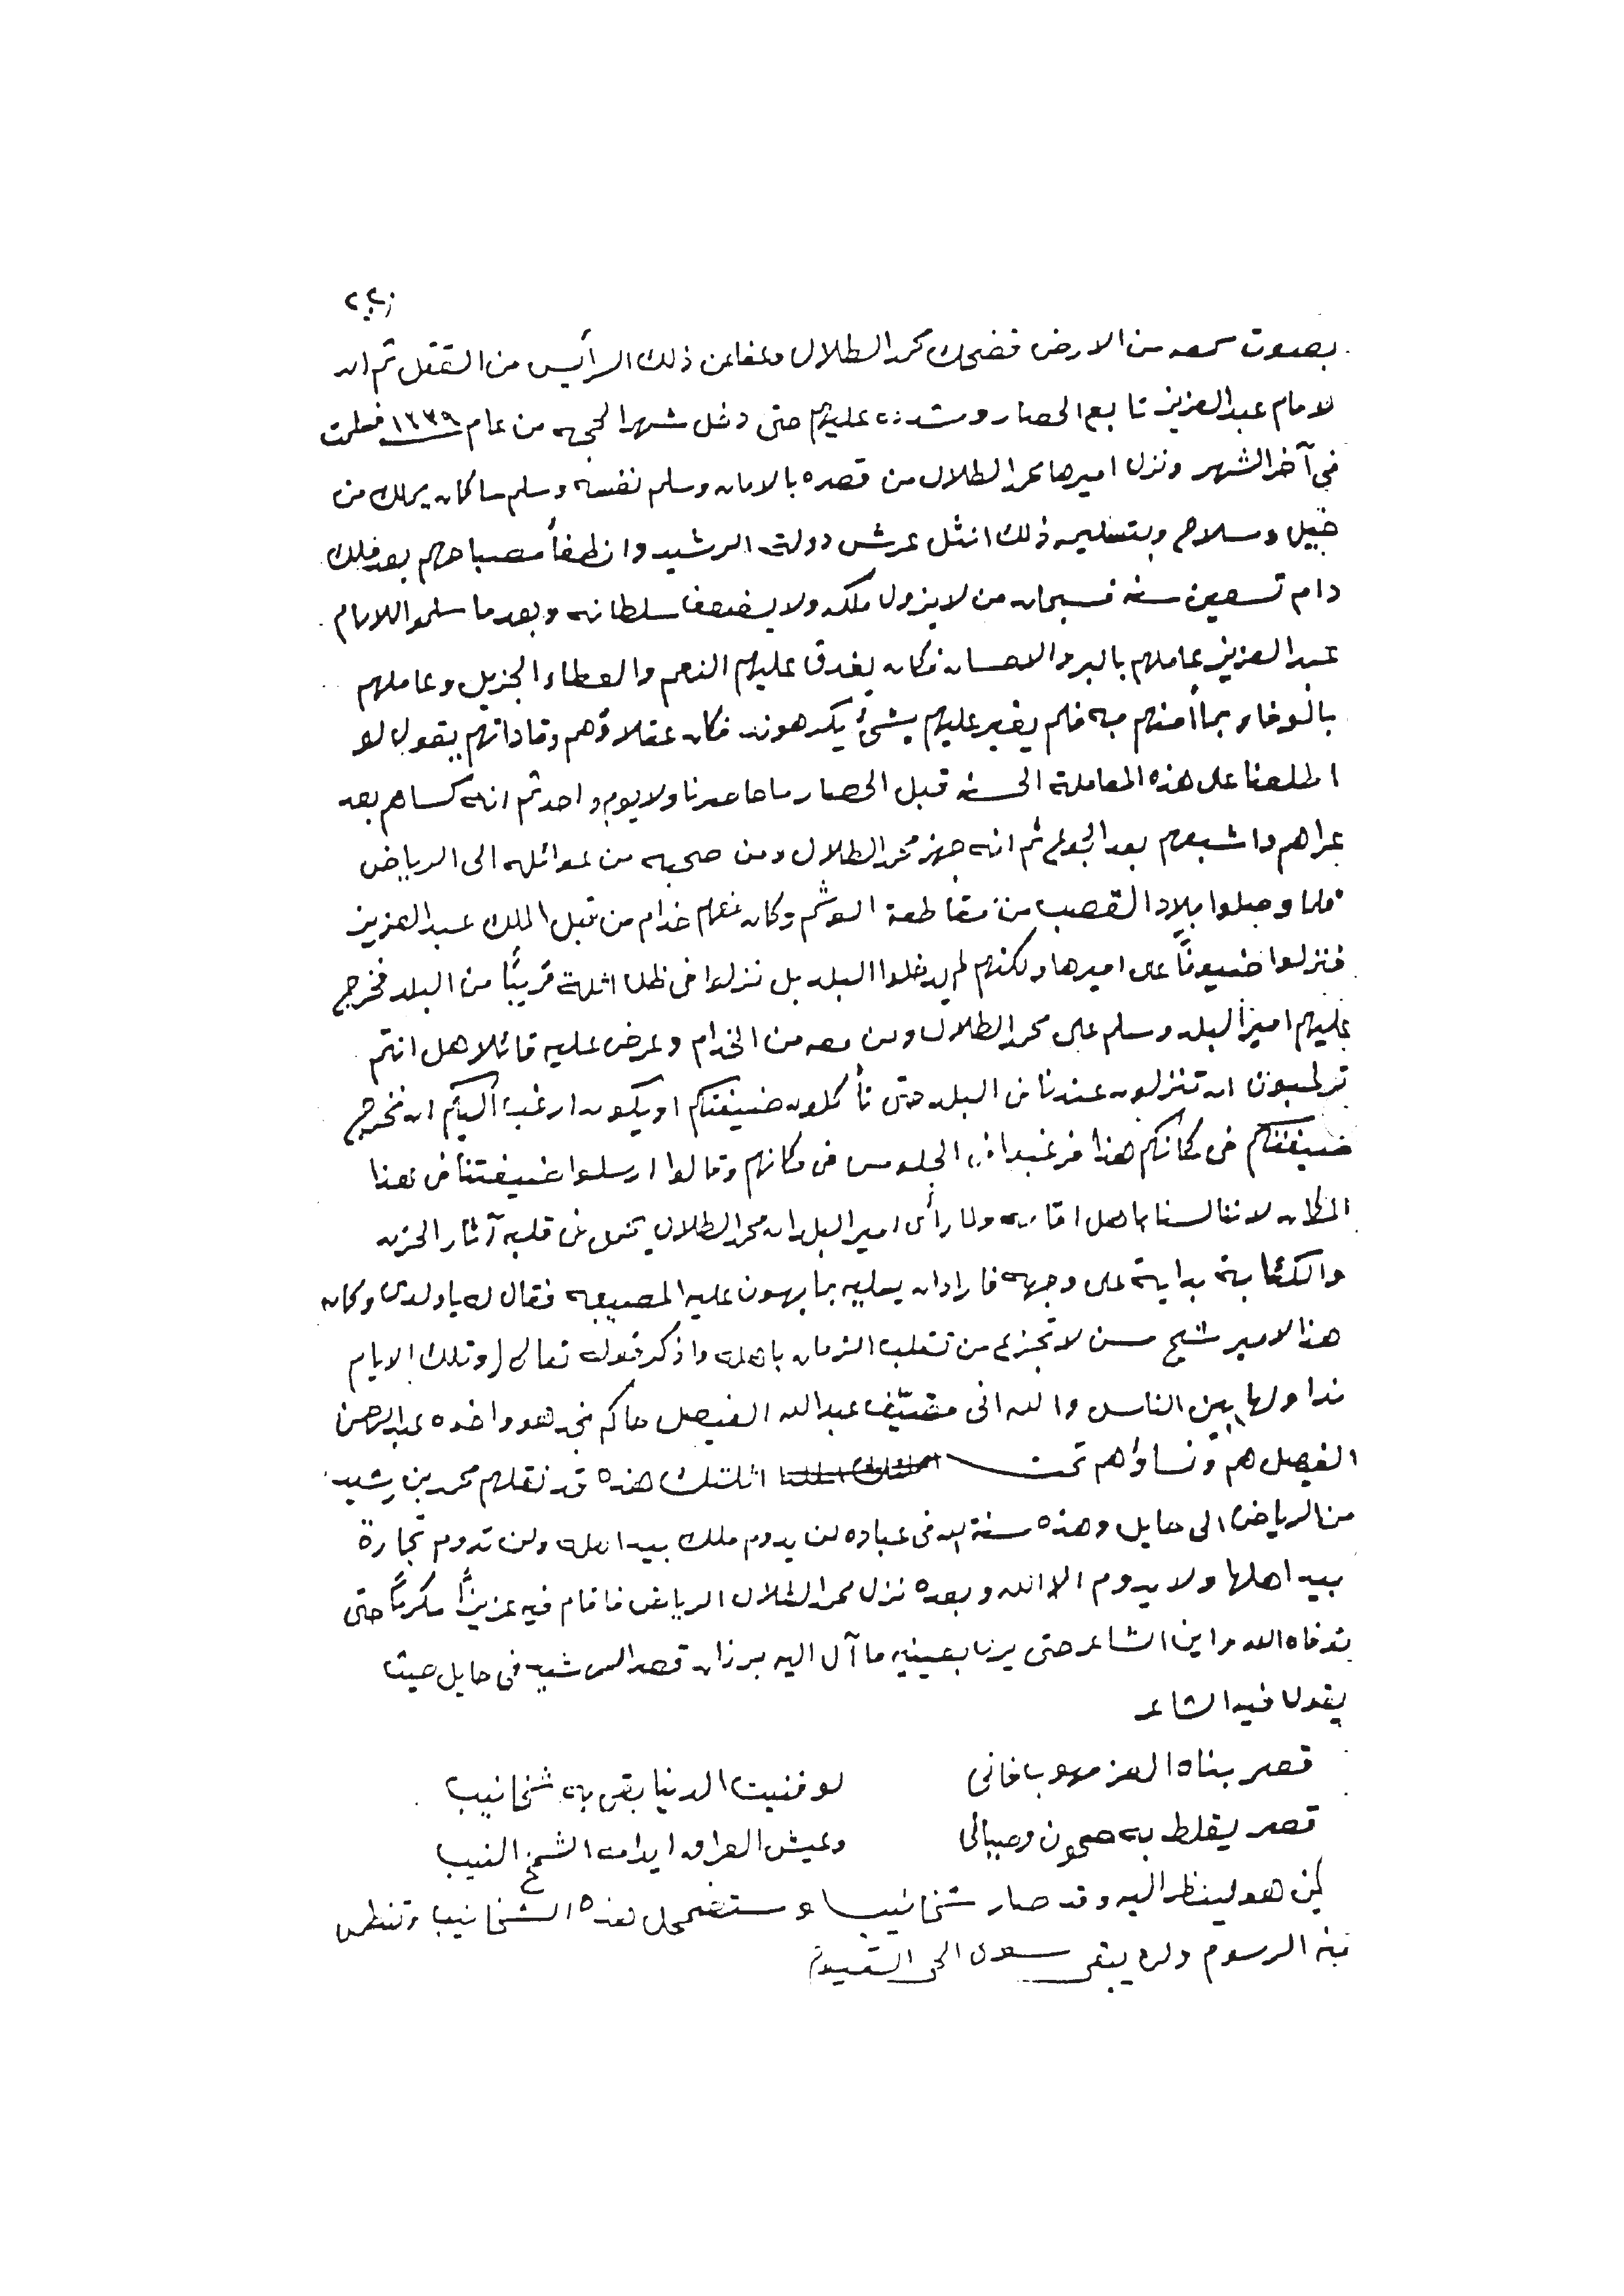 بصوت سمعه من الارض فضحك محمد الطلال وعفا عن ذلك الرأيس من القتل ثم ان
الامام عبدالعزيز تابع الحصار وشدده عليهم حتى دخل شهر الحجه من عام ١٣٣٩ فسلمت
في آخر الشهر ونزل اميرها محمد الطلال من قصره بالامان وسلم نفسه وسلم ما كان يملك من
خيل وسلاح وبتسليمه ذلك انثل عرش دولة الرشيد وانطفأ مصباحهم بعد ملك
دام تسعين سنه فسبحان من لا يزول ملكه ولا يضعف سلطانه وبعد ما سلموا للامام
عبد العزيز عاملهم بالبر والاحسان فكان يغدق عليهم النعم والعطاء الجزيل وعاملهم
بالوفاء بما أمنهم به فلم يغير عليهم بشئ يكرهونه فكان عقلاؤهم وقاداتهم يقول لو
اطلعنا على هذه المعاملة الحسنه قبل الحصار ما حاصرنا ولا يوم واحد ثم انه كساهم بعد
عراهم واشبعهم بعد الجوع ثم انه جهز محمد الطلال ومن صحبه من عوائله الى الرياض
فلما وصلوا بلاد القصب من مقاطعة الوشم وكان معهم خدام من قبل الملك عبد العزيز
فنزلوا ضيوفاً على اميرها ولكنهم لم يدخلوا البلد بل نزلوا في ظل اثلة قريبًا من البلد فخرج
عليهم امير البلد وسلم على محمد الطلال ومن معه من الخدام وعرض عليه قائلا هل انتم
ترغبون ان تنزلون عندنا في البلد حتى تأكلون ضيفتكم او يكون ارغب اليكم ان نخرج
ضيفتكم في مكانكم هذا فرغبوا في الجلوس في مكانهم وقالوا ارسلوا ضيفتنا في هذا
المكان لاننا لسنا باهل اقامه ولما رأى امير البلد ان محمد الطلال يحمل في قلبه آثار الحزن
والكئابة بداية على وجهه فاراد ان يسليه بما يهون عليه المصيبه فقال له يا ولدى وكان
هذا الامير شيخ مسن لا تجزع من تقلب الزمان باهله واذكر قوله تعالى (وتلك الايام
نداولها بين الناس والله اني مضيّف عبدالله الفيصل حاكم نجد هو واخوه عبدالرحمن
الفيصل هم ونساؤهم تحت اثلتك هذه قد نقلهم محمد بن رشيد
من الرياض الى حايل وهذه سنة الله في عباده لن يدوم ملك بيد اهله ولن تدوم تجارة
بيد اهلها ولا يدوم الا الله وبعده نزل محمد الطلال الرياض فاقام فيه عزيزاً مكرمًا حتى
توفاه الله واين الشاعر حتى يرى بعينيه ما آل اليه برزان قصر الرشيد في حايل حيث
يقول فيه الشاعر
قصر بناه العز مهوب فاني لو فنيت الدنيا بقى به شخانيب
قصر يقلط به صحون وصيالي وعيش العراق ايدامه الشحم النيب
لمن هو لينظر اليه وقد صار شخانيب وستضمحل هذه الشخانيب وتنطمس
منه الرسوم ولن يبقى سوى الحي القيوم